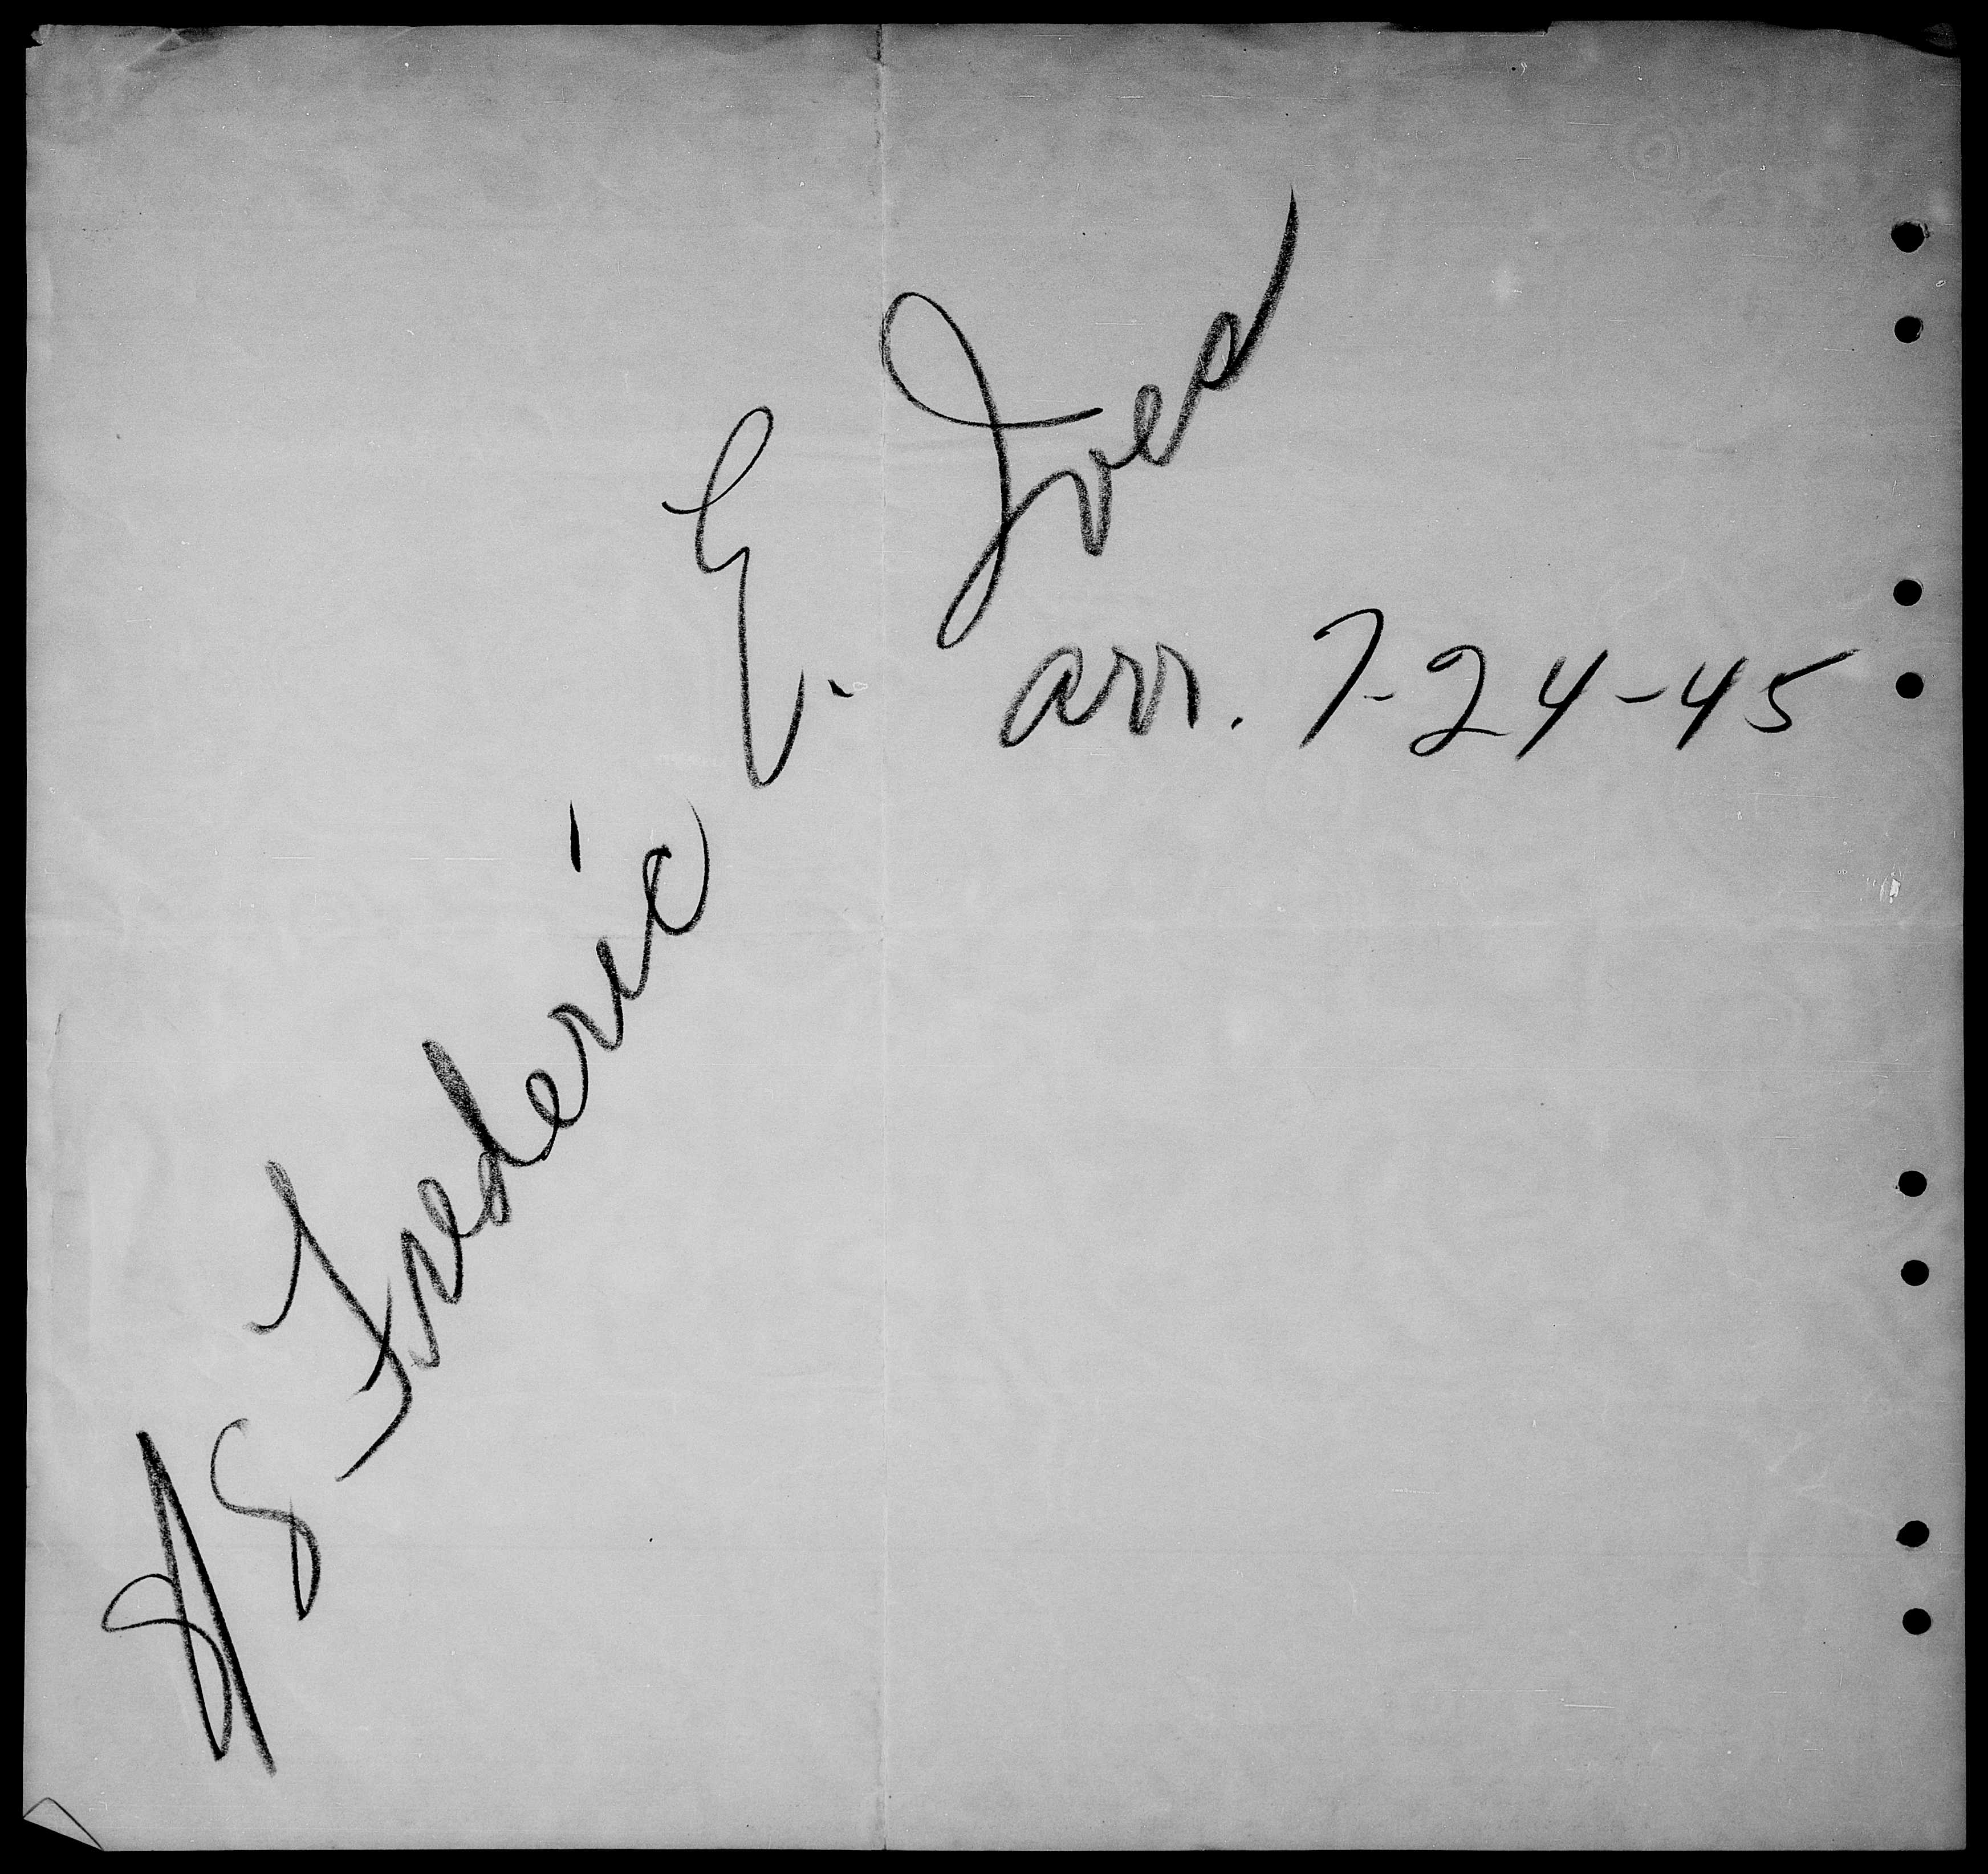 SS Frederic E. Ives
arr. 7-24-45